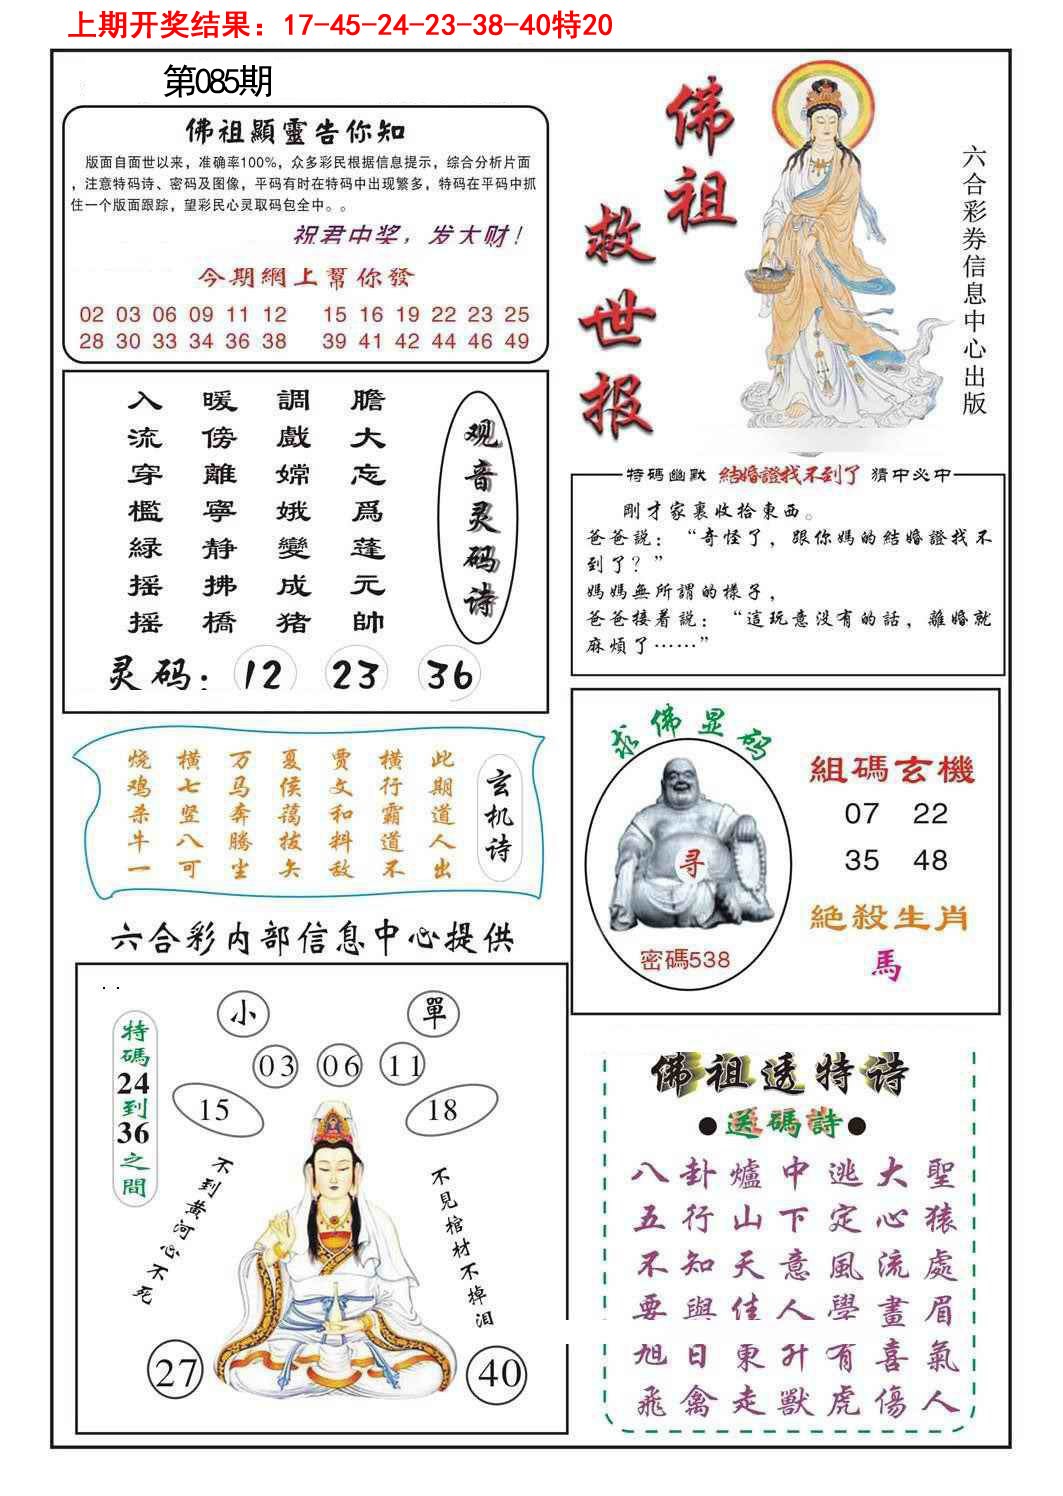 上期开奖结果：17-45-24-23-38-40特20
第085期
佛祖顯靈告你知
版面自面世以来，准确率100%，众多彩民根据信息提示，综合分析片面
，注意特码诗、密码及图像，平码有时在特码中出现繁多，特码在平码中抓
住一个版面跟踪，望彩民心灵取码包全中。。
祝君中奖，发大财！
今期網上幫你發
02 03 06 09 11 12 15 16 19 22 23 25
28 30 33 34 36 38 39 41 42 44 46 49
佛祖
救世报
六合彩券信息中心出版
观音灵码诗
膽大忘爲蓬元帥
調戲嫦娥變成猪
暖傍離寧静拂橋
入流穿檻緑摇摇
灵码：12 23 36
特碼幽默 結婚證找不到了 猜中必中
剛才家裏收拾東西。
爸爸説：“奇怪了，跟你媽的結婚證找不
到了？”
媽媽無所謂的樣子，
爸爸接着説：“這玩意没有的話，離婚就
麻煩了……”
玄机诗
此期道人出
横行霸道不
贾文和料敌
夏侯蔼拔矢
万马奔腾尘
横七竖八可
烧鸡杀牛一
求佛显码
寻
密碼538
組碼玄機
07 22
35 48
絶殺生肖
馬
六合彩内部信息中心提供
特碼24到36之間
小 單
03 06 11
15 18
不到黄河心不死
不見棺材不掉泪
27 40
佛祖透特诗
●送碼詩●
八卦爐中逃大聖
五行山下定心猿
不知天意風流處
要與佳人學畫眉
旭日東升有喜氣
飛禽走獸虎傷人